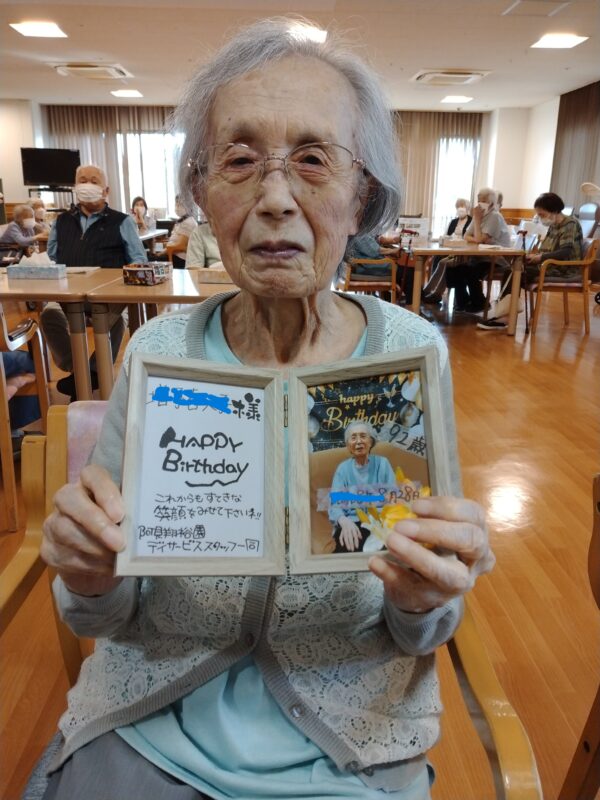 様
HAPPY
Birthday
これからもすてきな
笑顔をみせて下さいネ!!
阿見翔裕園
デイサービススタッフ一同
happy
Birthday
92歳
8月28日